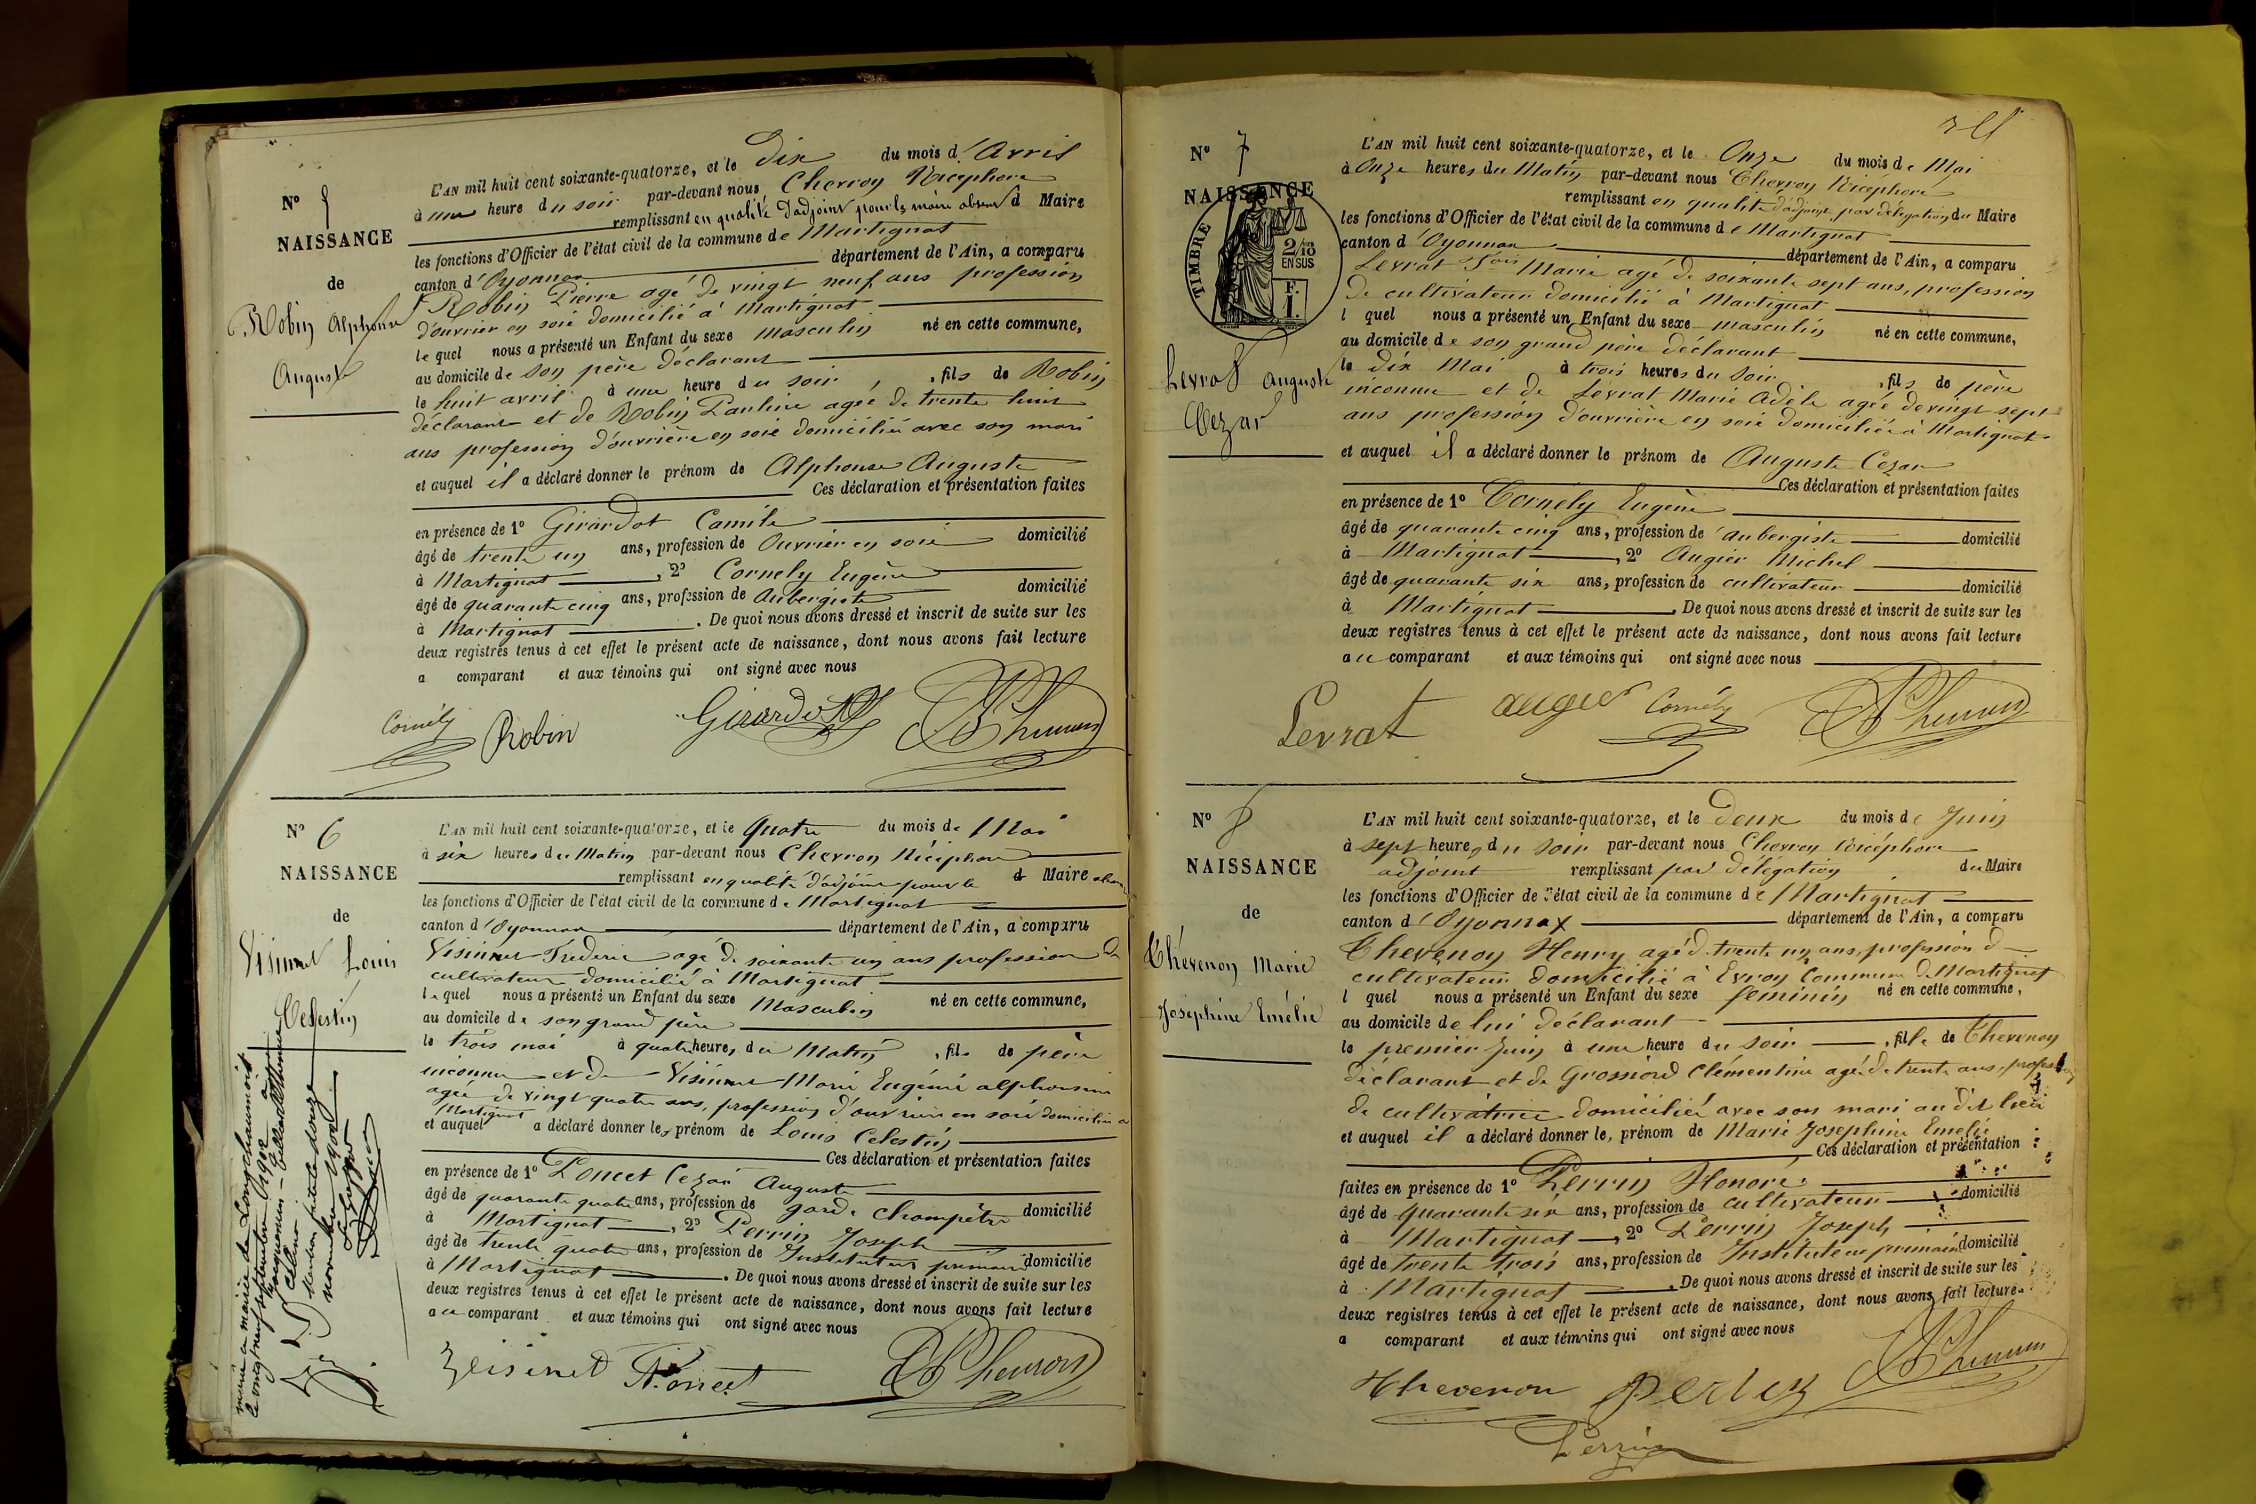 L'AN mil huit cent soixante-quatorze, et le Dix du mois d'Avril
à une heure du soir par-devant nous Chevron Nicéphore
remplissant en qualité d'adjoint pour le maire absent d Maire
les fonctions d'Officier de l'état civil de la commune de Martignat
canton d'Oyonnax département de l'Ain, a comparu
Robin Pierre agé de vingt neuf ans profession
d'ouvrier en soie domicilié à Martignat
lequel nous a présenté un Enfant du sexe masculin né en cette commune,
au domicile de son père déclarant
le huit avril à une heure du soir, fils de Robin
déclarant et de Robin Pauline agée de trente huit
ans profession d'ouvrière en soie domiciliée avec son mari
et auquel il a déclaré donner le prénom de Alphonse Auguste
Ces déclaration et présentation faites
en présence de 1º Girardot Camile
âgé de trente un ans, profession de Ouvrier en soie domicilié
à Martignat, 2º Cornely Eugène
âgé de quarante cinq ans, profession de Aubergiste domicilié
à Martignat. De quoi nous avons dressé et inscrit de suite sur les
deux registres tenus à cet effet le présent acte de naissance, dont nous avons fait lecture
a comparant et aux témoins qui ont signé avec nous
Cornély Robin Girardot
Nº
NAISSANCE
de
Robin Alphonse
Auguste
Nº 6
NAISSANCE
de
Visinet Louis
Celestin
L'AN mil huit cent soixante-quatorze, et le Quatre du mois de Mai
à six heures du Matin par-devant nous Chevron Nicéphore
remplissant en qualité d'adjoint pour le d Maire absent
les fonctions d'Officier de l'état civil de la commune de Martignat
canton d'Oyonnax département de l'Ain, a comparu
Visinet Fréderic agé de soixante un ans profession de
cultivateur domicilié à Martignat
lequel nous a présenté un Enfant du sexe Masculin né en cette commune,
au domicile de son grand père
le trois mai à quatre heures du Matin, fils de père
inconnu et de Visinet Marie Eugénie alphonsine
agée de vingt quatre ans, profession d'ouvrière en soie domiciliée à
Martignat
et auquel a déclaré donner les prénom de Louis Celestin
Ces déclaration et présentation faites
en présence de 1º Poncet Cezar Auguste
âgé de quarante quatre ans, profession de garde champêtre domicilié
à Martignat, 2º Perrin Joseph
âgé de trente quatre ans, profession de Instituteur primaire domicilié
à Martignat. De quoi nous avons dressé et inscrit de suite sur les
deux registres tenus à cet effet le présent acte de naissance, dont nous avons fait lecture
au comparant et aux témoins qui ont signé avec nous
Poncet
à la mairie de Longchaumois
le vingt neuf septembre 1902
Nº 7
NAISSANCE
TIMBRE
2/10
EN SUS
F.
1.
Levrat Auguste
Cezar
L'AN mil huit cent soixante-quatorze, et le Onze du mois de Mai
à Onze heures du Matin par-devant nous Chevron Nicéphore
remplissant en qualité d'adjoint par délégation du Maire
les fonctions d'Officier de l'état civil de la commune de Martignat
canton d'Oyonnax département de l'Ain, a comparu
Levrat Fois Marie agé de soixante sept ans, profession
de cultivateur domicilié à Martignat
l quel nous a présenté un Enfant du sexe masculin né en cette commune,
au domicile de son grand père déclarant
le dix Mai à trois heures du soir, fils de père
inconnu et de Levrat Marie Adèle agée de vingt sept
ans profession d'ouvrière en soie domiciliée à Martignat
et auquel il a déclaré donner le prénom de Auguste Cezar
Ces déclaration et présentation faites
en présence de 1º Cornély Eugène
âgé de quarante cinq ans, profession de aubergiste domicilié
à Martignat, 2º Augier Michel
âgé de quarante six ans, profession de cultivateur domicilié
à Martignat. De quoi nous avons dressé et inscrit de suite sur les
deux registres tenus à cet effet le présent acte de naissance, dont nous avons fait lecture
au comparant et aux témoins qui ont signé avec nous
Levrat augier Cornély
Nº 8
NAISSANCE
de
Thévenon Marie
Joséphine Emélie
L'AN mil huit cent soixante-quatorze, et le Deux du mois de Juin
à sept heures du soir par-devant nous Chevron Nicéphore
adjoint remplissant par délégation du Maire
les fonctions d'Officier de l'état civil de la commune de Martignat
canton d'Oyonnax département de l'Ain, a comparu
Thevenon Henry agé de trente un ans, profession de
cultivateur domicilié à Evron Commune de Martignat
l quel nous a présenté un Enfant du sexe féminin né en cette commune,
au domicile de lui déclarant
le premier Juin à une heure du soir, fille de Thevenon
déclarant et de Grossiord Clémentine agée de trente ans, profession
de cultivatrice domiciliée avec son mari au dit lieu
et auquel il a déclaré donner le, prénom de Marie Josephine Emelie
Ces déclaration et présentation
faites en présence de 1º Perrin Honoré
âgé de Quarante six ans, profession de cultivateur domicilié
à Martignat, 2º Perrin Joseph
âgé de trente trois ans, profession de Instituteur primaire domicilié
à Martignat. De quoi nous avons dressé et inscrit de suite sur les
deux registres tenus à cet effet le présent acte de naissance, dont nous avons fait lecture
a comparant et aux témoins qui ont signé avec nous
Thevenon
Perrin